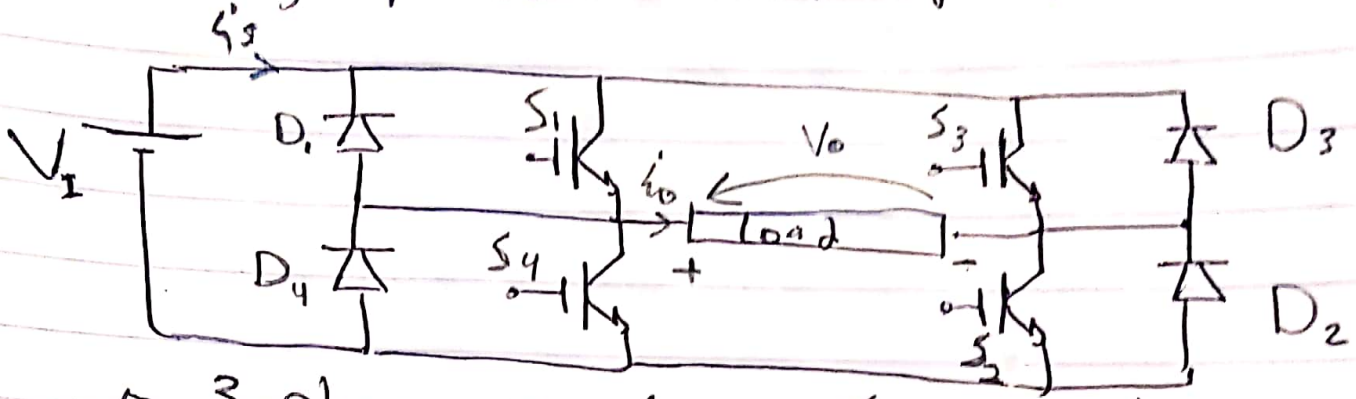 is
D1
S1
Vo
S3
D3
VI
io
Load
D4
S4
+
-
S2
D2